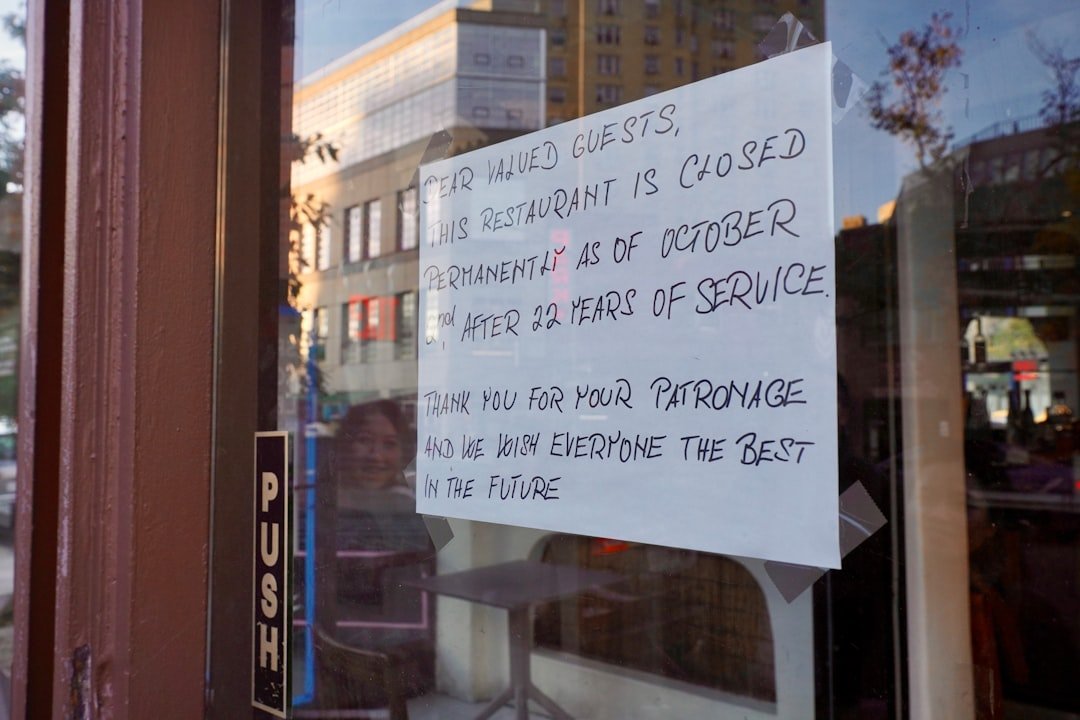 DEAR VALUED GUESTS,
THIS RESTAURANT IS CLOSED
PERMANENTLY AS OF OCTOBER
2nd, AFTER 22 YEARS OF SERVICE.
THANK YOU FOR YOUR PATRONAGE
AND WE WISH EVERYONE THE BEST
IN THE FUTURE
PUSH